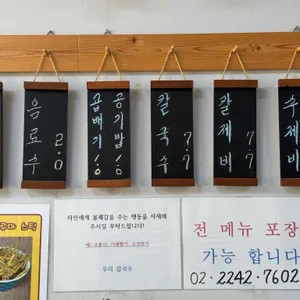 음료수 2.0
곱빼기 1.0
공기밥 1.0
칼국수 7.
칼제비 7.7
수제비
타인에게 불쾌감을 주는 행동을 자제해
주시길 부탁드립니다!
우리 칼국수
전 메뉴 포장
가능 합니다
02·2242·7602